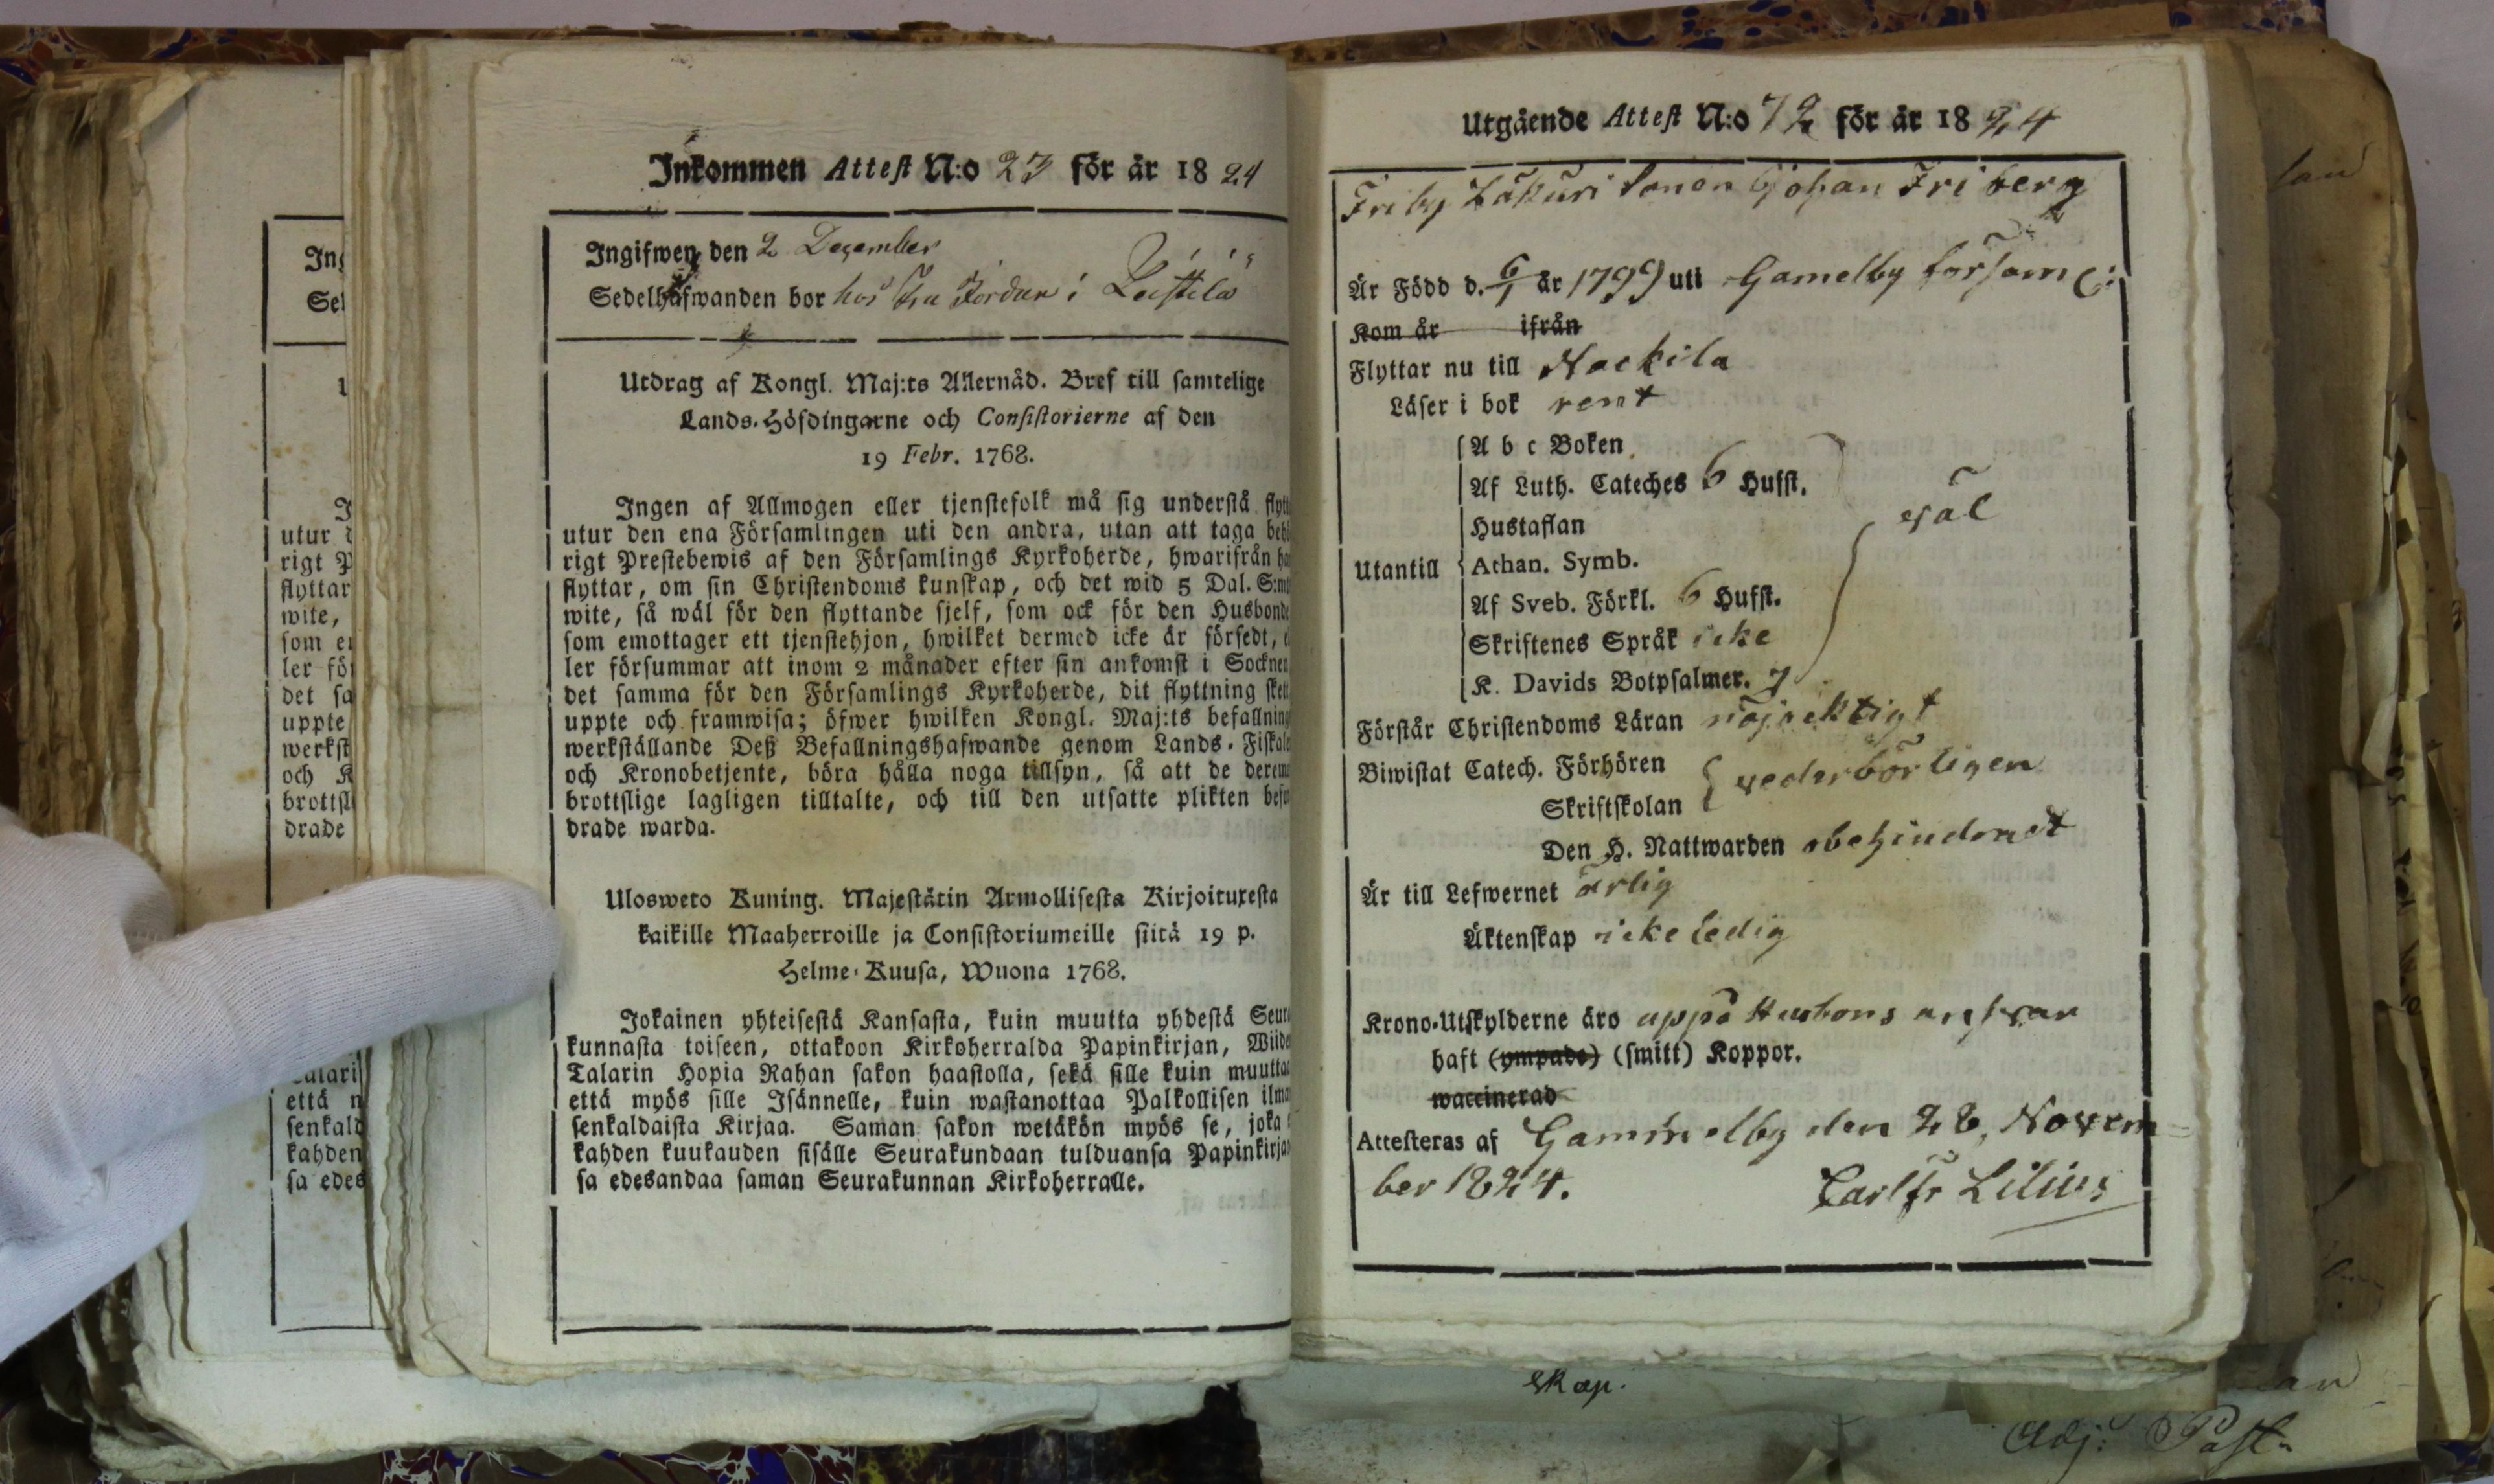 Inkommen Attest N:o 23 för år 1824
Ingifwen den 2 December
Sedelhafwanden bor hos i
Utdrag af Kongl. Maj:ts Allernåd. Bref till samtelige
Lands-Höfdingarne och Consistorierne af den
19 Febr. 1768.
Ingen af Allmogen eller tjenstefolk må sig understå flytt
utur den ena Församlingen uti den andra, utan att taga behö
rigt Prestebewis af den Församlings Kyrkoherde, hwarifrån ha
flyttar, om sin Christendoms kunskap, och det wid 5 Dal. S:mt
wite, så wäl för den flyttande sjelf, som ock för den Husbonde
som emottager ett tjenstehjon, hwilket dermed icke är försedt, e
ler försummar att inom 2 månader efter sin ankomst i Socknen
det samma för den Församlings Kyrkoherde, dit flyttning sken
uppte och framwisa; öfwer hwilken Kongl. Maj:ts befallning
werkställande Deß Befallningshafwande genom Lands-Fiskale
och Kronobetjente, böra hålla noga tillsyn, så att de derem
brottslige lagligen tilltalte, och till den utsatte plikten befo
drade warda.
Ulosweto Kuning. Majestätin Armollisesta Kirjoituxesta
kaikille Maaherroille ja Consistoriumeille siitä 19 p.
Helme-Kuusa, Wuona 1768.
Jokainen yhteisestä Kansasta, kuin muutta yhdestä Seura
kunnasta toiseen, ottakoon Kirkoherralda Papinkirjan, Wiide
Talarin Hopia Rahan sakon haastolla, sekä sille kuin muuttaa
että myös sille Isännelle, kuin wastanottaa Palkollisen ilma
senkaldaista Kirjaa. Saman sakon wetäkön myös se, joka
kahden kuukauden sisälle Seurakundaan tulduansa Papinkirja
sa edesandaa saman Seurakunnan Kirkoherralle.
Utgående Attest N:o 72 för år 1824
Friby sonen Johan Friberg
Är Född d. 6/1 år 1799 uti Gamelby församl:
Kom år ifrån
Flyttar nu till Nackila
Läser i bok rent
A b c Boken
Af Luth. Cateches 6 Hufst.
Hustaflan
wäl
Utantill Athan. Symb.
Af Sveb. Förkl. 6 Hufst.
Skriftenes Språk icke
K. Davids Botpsalmer. 7
Förstår Christendoms Läran nöjaktigt
Biwistat Catech. Förhören
vederbörligen
Skriftskolan
Den H. Nattwarden obehindradt
Är till Lefwernet ärlig
Äktenskap icke ledig
Krono-Utskylderne äro uppå Husbons answar
haft (ympade) (smitt) Koppor.
waccinerad
Attesteras af Gammelby den 26, Novem=
ber 1824. Carl Fr Lilius
skap.
Adj: Past.